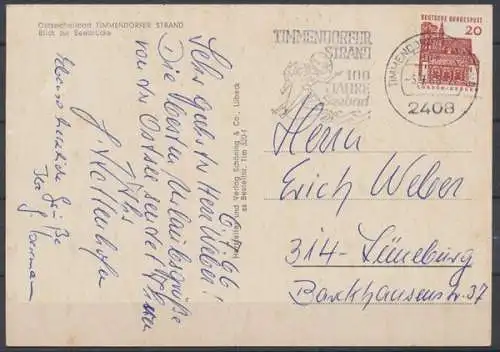 Ostseeheilbad TIMMENDORFER STRAND
Blick zur Seebrücke
6.7.66
Sehr geehrter Herr Weber!
Die besten Urlaubsgrüße
von der Ostsee sendet Ihnen
Ihr
Ebenso herzliche Grüße
Ihr
Herstellung und Verlag Schöning & Co., Lübeck
TIMMENDORFER
STRAND
100
JAHRE
Seebad
TIMMENDO
2408
DEUTSCHE BUNDESPOST
20
LORSCH-HESSEN
Herrn
Erich Weber
314-Lüneburg
Barckhausenstr. 37